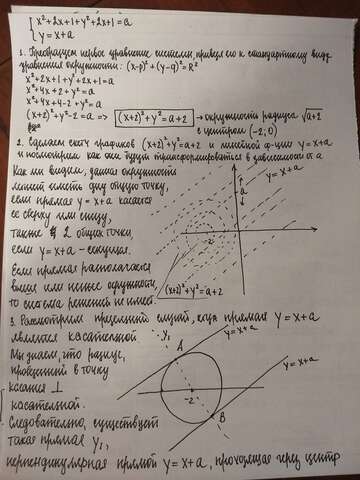 { x²+2x+1+y²+2x+1=a
{ y=x+a
1. Преобразуем первое уравнение системы, приведя его к стандартному виду
уравнения окружности: (x-p)²+(y-q)²=R²
x²+2x+1+y²+2x+1=a
x²+4x+2+y²=a
x²+4x+4-2+y²=a
(x+2)²+y²-2=a => (x+2)²+y²=a+2 → окружность радиуса √a+2
с центром (-2;0)
2. Сделаем скетч графиков (x+2)²+y²=a+2 и линейной ф-ции y=x+a
и посмотрим как они будут трансформироваться в зависимости от a
Как мы видим, данная окружность
может иметь одну общую точку,
если прямая y=x+a касается
её сверху или снизу,
также 2 общих точки,
если y=x+a - секущая.
Если прямая располагается
выше или ниже окружности,
то система решений не имеет.
a
y=x+a
-2
(x+2)²+y²=a+2
3. Рассмотрим предельный случай, когда прямая y=x+a
является касательной
Мы знаем, что радиус,
проведённый в точку
касания ⊥
касательной.
Следовательно, существует
такая прямая y₁,
перпендикулярная прямой y=x+a, проходящая через центр
y₁
A
y=x+a
y=x+a
-2
B